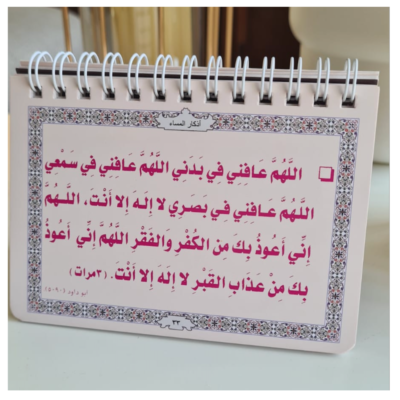 أذكار المساء
اللَّهُمَّ عَافِنِي فِي بَدَنِي اللَّهُمَّ عَافِنِي فِي سَمْعِي
اللَّهُمَّ عَافِنِي فِي بَصَرِي لا إِلَهَ إِلا أَنْتَ، اللَّهُمَّ
إِنِّي أَعُوذُ بِكَ مِنَ الكُفْرِ وَالفَقْرِ اللَّهُمَّ إِنِّي أَعُوذُ
بِكَ مِنْ عَذَابِ القَبْرِ لا إِلَهَ إِلا أَنْتَ. (٣مرات)
أبو داود (٥٠٩٠)